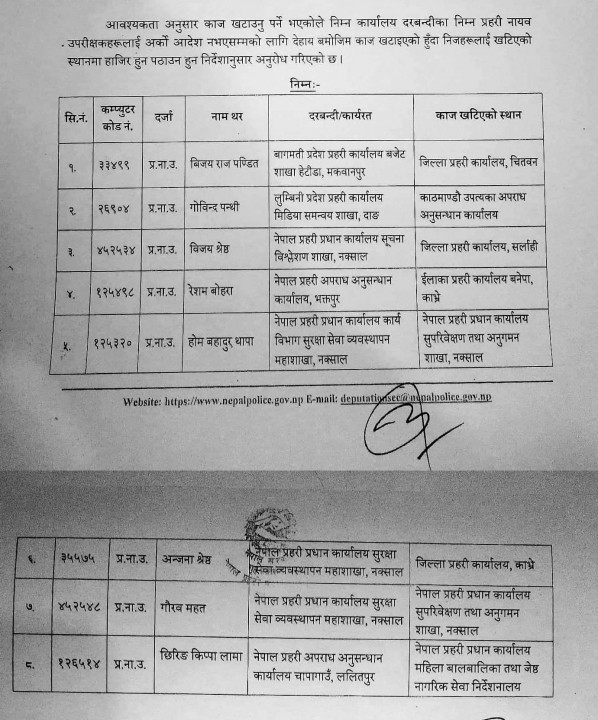 आवश्यकता अनुसार काज खटाउनु पर्ने भएकोले निम्न कार्यालय दरबन्दीका निम्न प्रहरी नायव
उपरीक्षकहरूलाई अर्को आदेश नभएसम्मको लागि देहाय बमोजिम काज खटाइएको हुँदा निजहरूलाई खटिएको
स्थानमा हाजिर हुन पठाउन हुन निर्देशानुसार अनुरोध गरिएको छ ।
निम्नः-
सि.नं. कम्प्युटर कोड नं. दर्जा नाम थर दरबन्दी/कार्यरत काज खटिएको स्थान
१. ३३४९९ प्र.ना.उ. बिजय राज पण्डित बागमती प्रदेश प्रहरी कार्यालय बजेट जिल्ला प्रहरी कार्यालय, चितवन
शाखा हेटौडा, मकवानपुर
२. २६९०४ प्र.ना.उ. गोविन्द पन्थी लुम्बिनी प्रदेश प्रहरी कार्यालय काठमाण्डौ उपत्यका अपराध
मिडिया समन्वय शाखा, दाङ अनुसन्धान कार्यालय
३. ४५२५३४ प्र.ना.उ. विजय श्रेष्ठ नेपाल प्रहरी प्रधान कार्यालय सूचना जिल्ला प्रहरी कार्यालय, सर्लाही
विश्लेशण शाखा, नक्साल
४. १२५४९८ प्र.ना.उ. रेशम बोहरा नेपाल प्रहरी अपराध अनुसन्धान ईलाका प्रहरी कार्यालय बनेपा,
कार्यालय, भक्तपुर काभ्रे
५. १२५३२० प्र.ना.उ. होम बहादुर थापा नेपाल प्रहरी प्रधान कार्यालय कार्य नेपाल प्रहरी प्रधान कार्यालय
विभाग सुरक्षा सेवा व्यवस्थापन सुपरिवेक्षण तथा अनुगमन
महाशाखा, नक्साल शाखा, नक्साल
Website: https://www.nepalpolice.gov.np E-mail: deputationsec@nepalpolice.gov.np
६. ३५५७५ प्र.ना.उ. अन्जना श्रेष्ठ नेपाल प्रहरी प्रधान कार्यालय सुरक्षा जिल्ला प्रहरी कार्यालय, काभ्रे
सेवा व्यवस्थापन महाशाखा, नक्साल
७. ४५२५४८ प्र.ना.उ. गौरव महत नेपाल प्रहरी प्रधान कार्यालय सुरक्षा नेपाल प्रहरी प्रधान कार्यालय
सेवा व्यवस्थापन महाशाखा, नक्साल सुपरिवेक्षण तथा अनुगमन
शाखा, नक्साल
८. १२६५१४ प्र.ना.उ. छिरिङ किप्पा लामा नेपाल प्रहरी अपराध अनुसन्धान नेपाल प्रहरी प्रधान कार्यालय
कार्यालय चापागाउँ, ललितपुर महिला बालबालिका तथा जेष्ठ
नागरिक सेवा निर्देशनालय